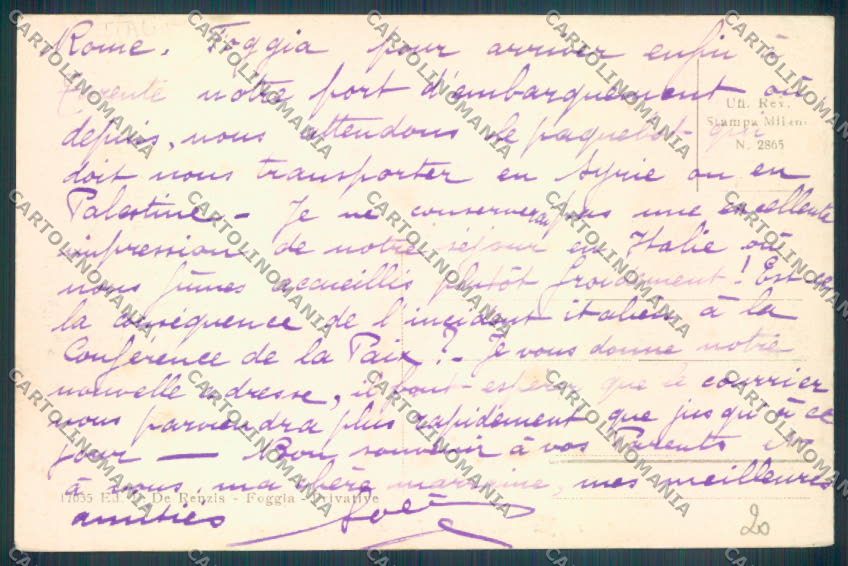 Rome. Foggia pour arriver enfin à
Tarente notre port d'embarquement où
depuis, nous attendons le paquebot qui
doit nous transporter en Syrie ou en
Palestine. - Je ne conserverai pas une excellente
impression de notre séjour en Italie où
nous fûmes accueillis plutôt froidement! Est-ce
la conséquence de l'incident italien à la
Conférence de la Paix? - Je vous donne notre
nouvelle adresse, il faut espérer que le courrier
nous parviendra plus rapidement que jusqu'à ce
jour — Bon souvenir à vos Parents et
à vous, ma chère marraine, mes meilleures
amitiés
Uff. Rev.
Stampa Milano
N. 2865
17635 Ed. De Renzis - Foggia - Privative
20
CARTOLINOMANIA